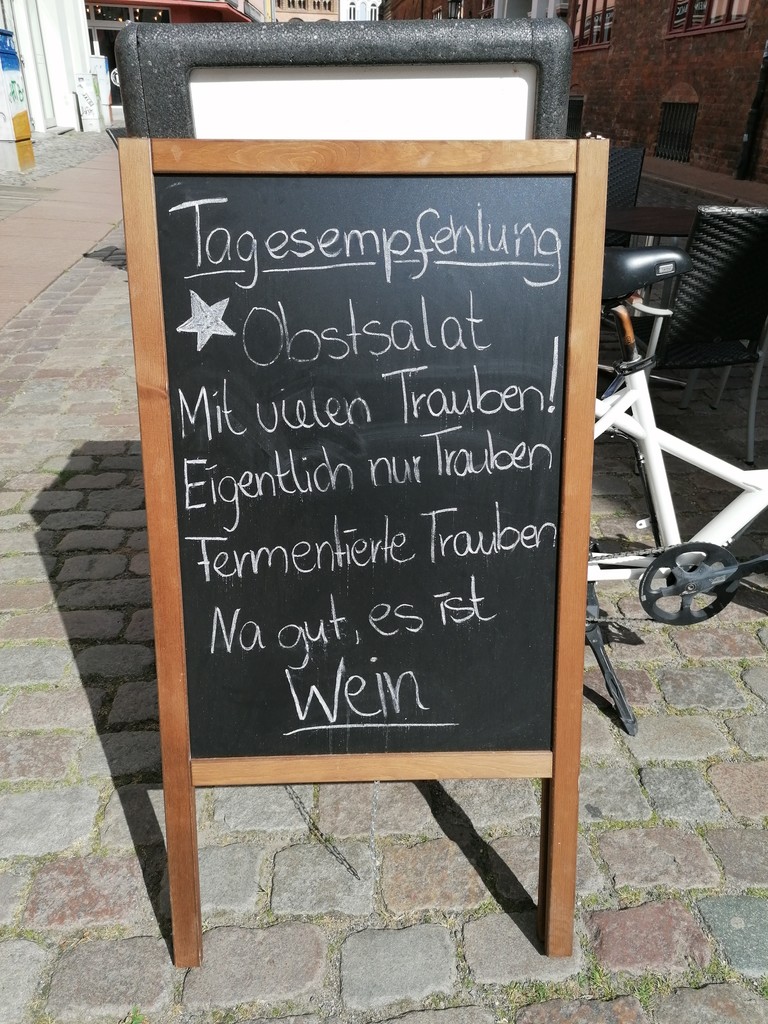 Tagesempfehlung
Obstsalat
Mit vielen Trauben!
Eigentlich nur Trauben
Fermentierte Trauben
Na gut, es ist
Wein